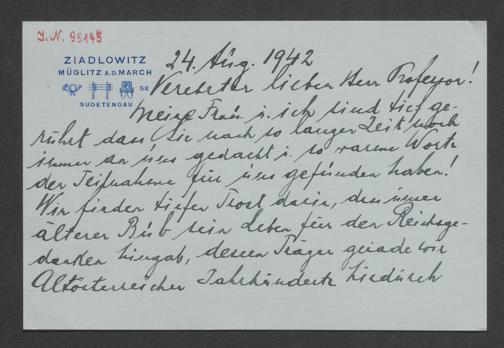 J. N. 95145
ZIADLOWITZ
MÜGLITZ A.D. MARCH
58
SUDETENGAU
24. Aug. 1942
Verehrter lieber Herr Professor!
Meine Frau u. ich sind tief ge-
rührt dass Sie nach so langer Zeit noch
immer an uns gedacht u. so warme Worte
der Teilnahme für uns gefunden haben!
Wir finden tiefen Trost darin, dass unser
älterer Bub sein Leben für den Reichsge-
danken hingab, dessen Träger gerade wir
Altösterreicher Jahrhunderte hindurch